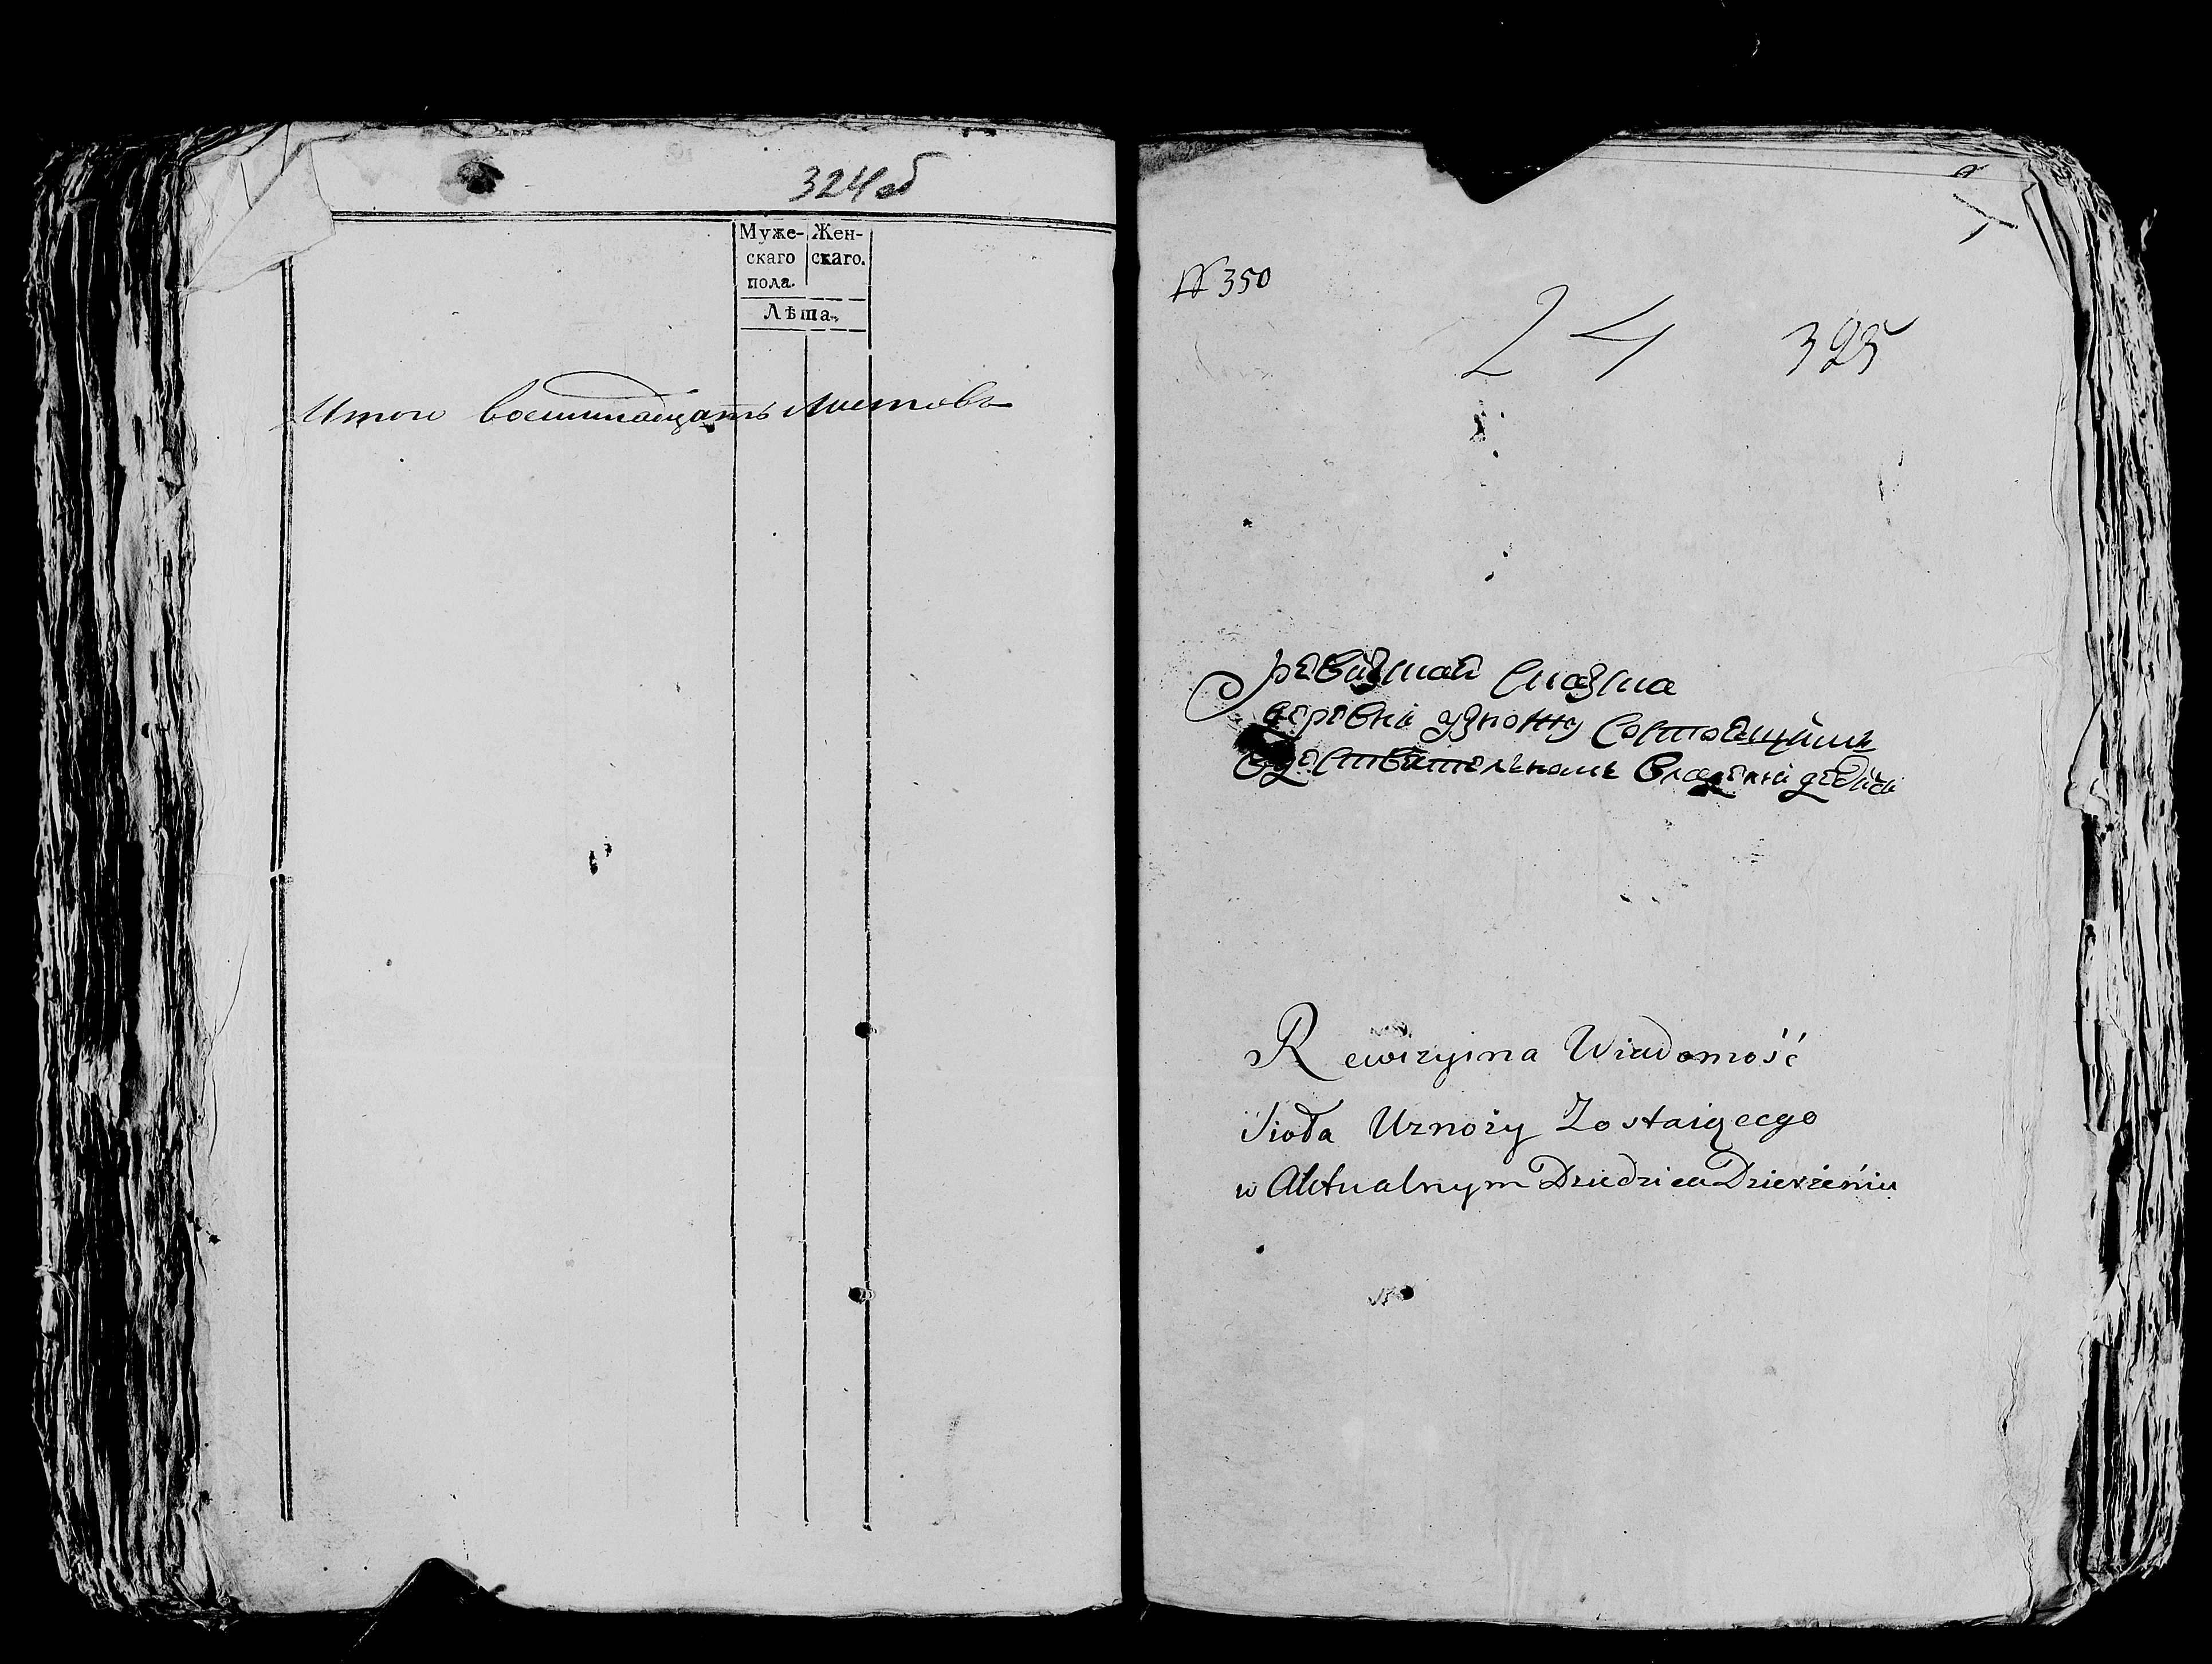 324 об
Муже- Жен-
скаго скаго.
пола.
Лѣта.
Итого восемнадцать листовъ
№ 350
24 325
ревизкай сказка
деревни узножу состоящим
действительнам владени дедича
Rewizyina Wiadomość
Sioła Uznoży Zostaiącego
w Aktualnym Dziedzica Dzierżeniu